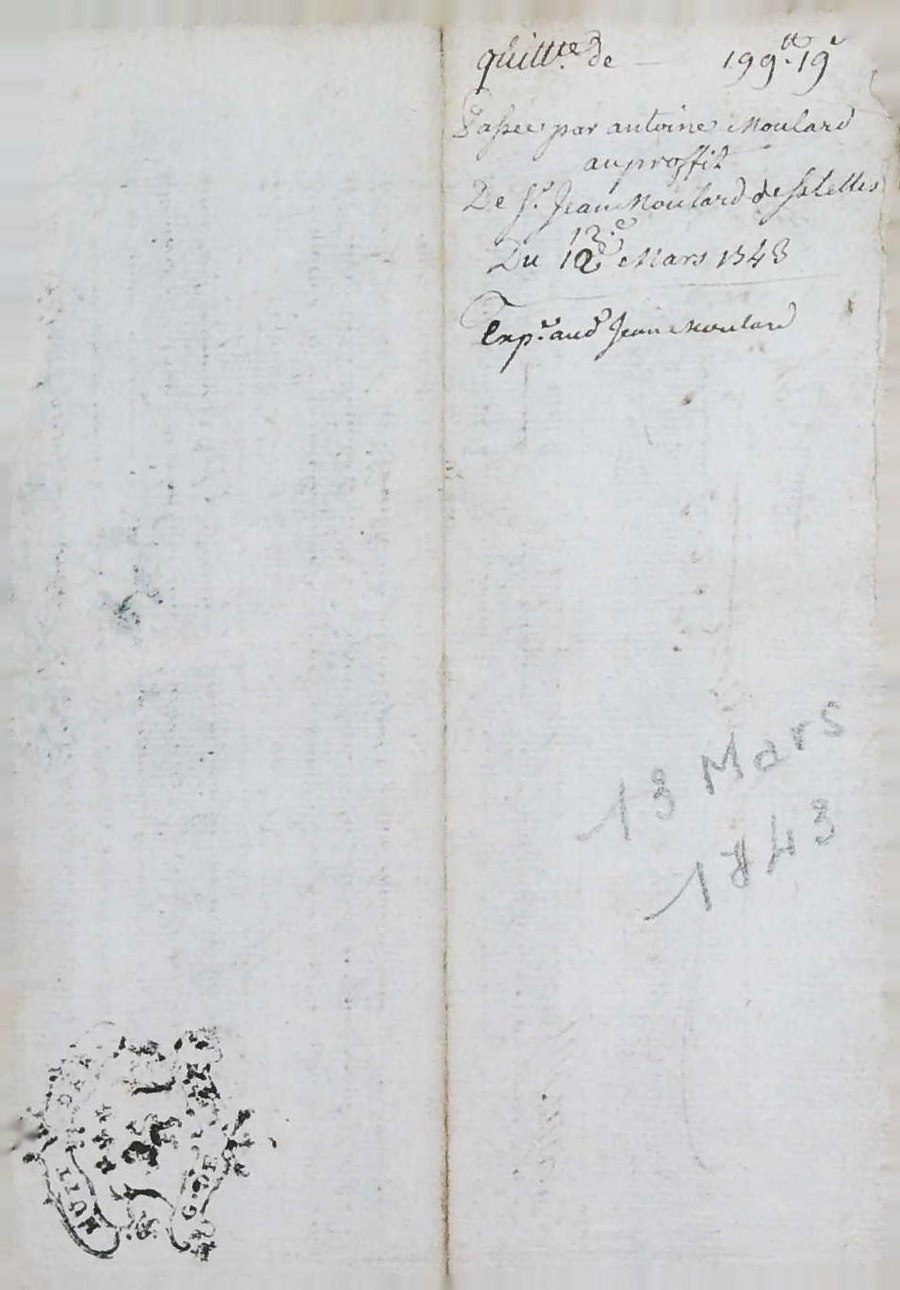 quitt.ce de — 199.tt 19s
Passée par antoine Moulard
au proffit
De Sr. Jean Moulard de
13.e
Du 12 Mars 1743
Exp.e aud Jean Moulard
13 Mars
1743
HUIT
G. DE